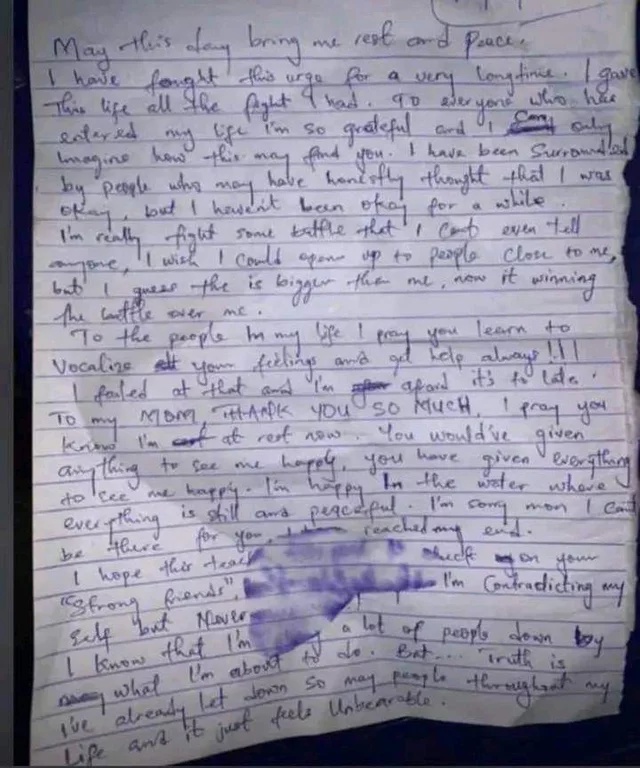 May this day bring me rest and peace.
I have fought this urge for a very longtime. I gave
This life all the fight I had. To everyone who has
entered my life I'm so grateful and I only
Imagine how this may find you. I have been Surrounded
by people who may have honestly thought that I was
okay, but I haven't been okay for a while.
I'm really fight some battle that I can't even tell
anyone, I wish I could open up to people close to me,
but I guess the is bigger than me, now it winning
the battle over me.
To the people In my life I pray you learn to
Vocalize your feelings and get help always!!!
I failed at that and I'm afraid it's to late.
To my MOM, THANK YOU SO MUCH, I pray you
know I'm at rest now. You would've given
anything to see me happy, you have given everything
to see me happy. I'm happy In the water where
everything is still and peaceful. I'm sorry mom I can't
be there for you, I reached my end.
I hope this teach check on your
"Strong friends", I'm Contradicting my
Self but Never
I know that I'm a lot of people down by
what I'm about to do. But.... Truth is
I've already let down so may people throughout my
Life and it just feels Unbearable.